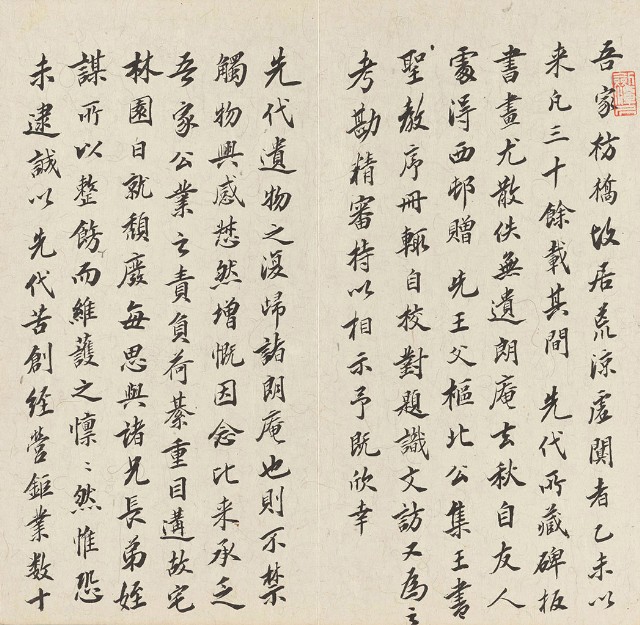 吾家枋橋故居荒涼虛闃者乙未以
来凡三十餘載其間 先代所藏碑板
書畫尤散佚無遺朗庵去秋自友人
處得西邨贈 先王父樞北公集王書
聖教序冊輒自校對題識文訪又為之
考勘精審持以相示予既欣幸
先代遺物之復歸詣朗庵也則不禁
觸物興感愁然增慨因念比来承乏
吾家公業之責負荷綦重目遘故宅
林園日就頹廢每思與諸兄長弟姪
謀所以整飭而維護之懍々然惟恐
未逮誠以先代苦創經營鉅業数十